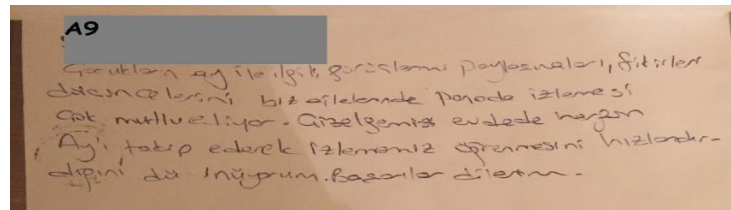 A9
Çocukların ay ile ilgili görüşlerini paylaşmaları, fikirleri
düşüncelerini biz ailelerinde panoda izlemesi
çok mutlu ediliyor. Çizelgemizi evdede hergün
Ay'ı takip ederek izlememiz öğrenmesini hızlandır-
dığını düşünüyorum. Başarılar dilerim.